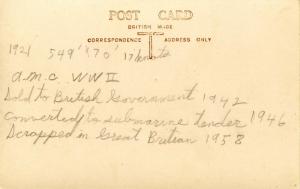 POST CARD
BRITISH MADE
CORRESPONDENCE ADDRESS ONLY
1921 549' x 70' 17 knots
A.M.C. WW II
Sold to British Government 1942
Converted to submarine tender 1946
Scrapped in Great Britian 1958